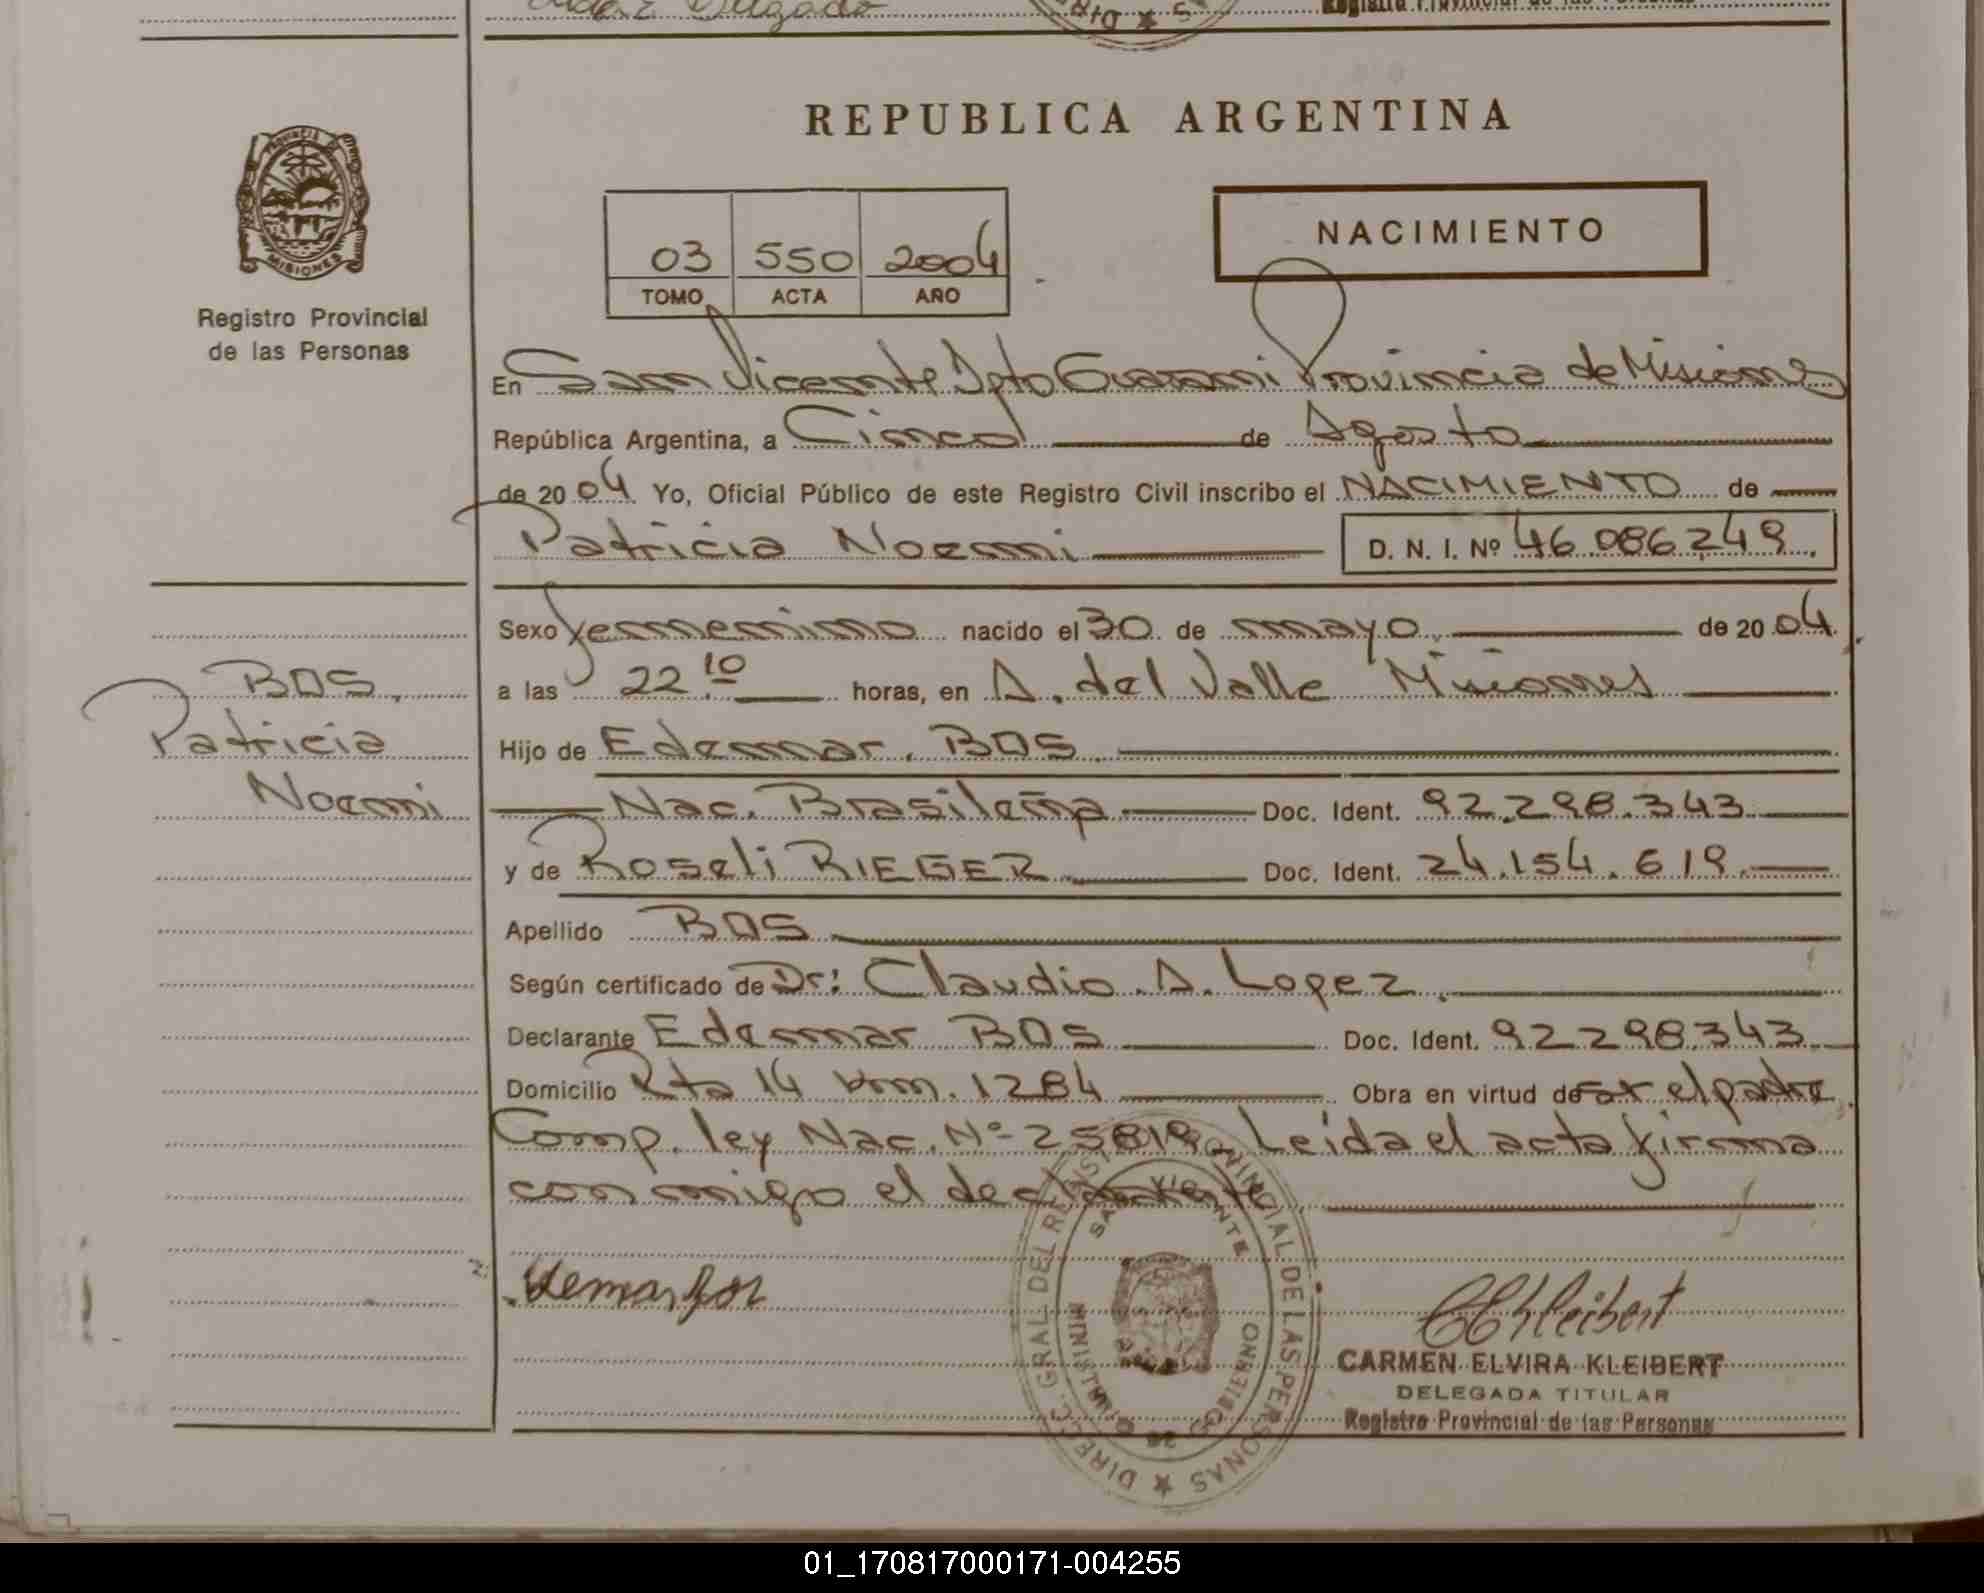 Registro Provincial de las Personas
REPUBLICA ARGENTINA
PROVINCIA DE MISIONES
Registro Provincial
de las Personas
03 550 2004
TOMO ACTA AÑO
NACIMIENTO
En San Vicente Dpto Guarani Provincia de Misiones
República Argentina, a Cinco de Agosto
de 2004 Yo, Oficial Público de este Registro Civil inscribo el NACIMIENTO de
Patricia Noemi D. N. I. Nº 46.086.249
Sexo femenino nacido el 30 de mayo de 2004
a las 22.10 horas, en A. del Valle Misiones
BOS,
Patricia
Noemi
Hijo de Edemar. BOS
Nac. Brasileña Doc. Ident. 92.298.343
y de Roseli RIEGER Doc. Ident. 24.154.619
Apellido BOS
Según certificado de Dr: Claudio. A. Lopez
Declarante Edemar BOS Doc. Ident. 92298343
Domicilio Rta 14 km. 1284 Obra en virtud de el padre
Comp. ley Nac. Nº 25819 Leida el acta firma
conmigo el declarante
DIREC. GRAL. DEL REGISTRO PROVINCIAL DE LAS PERSONAS
SAN VICENTE
MINISTERIO DE GOBIERNO
CEKleibert
CARMEN ELVIRA KLEIBERT
DELEGADA TITULAR
Registro Provincial de las Personas
01_170817000171-004255